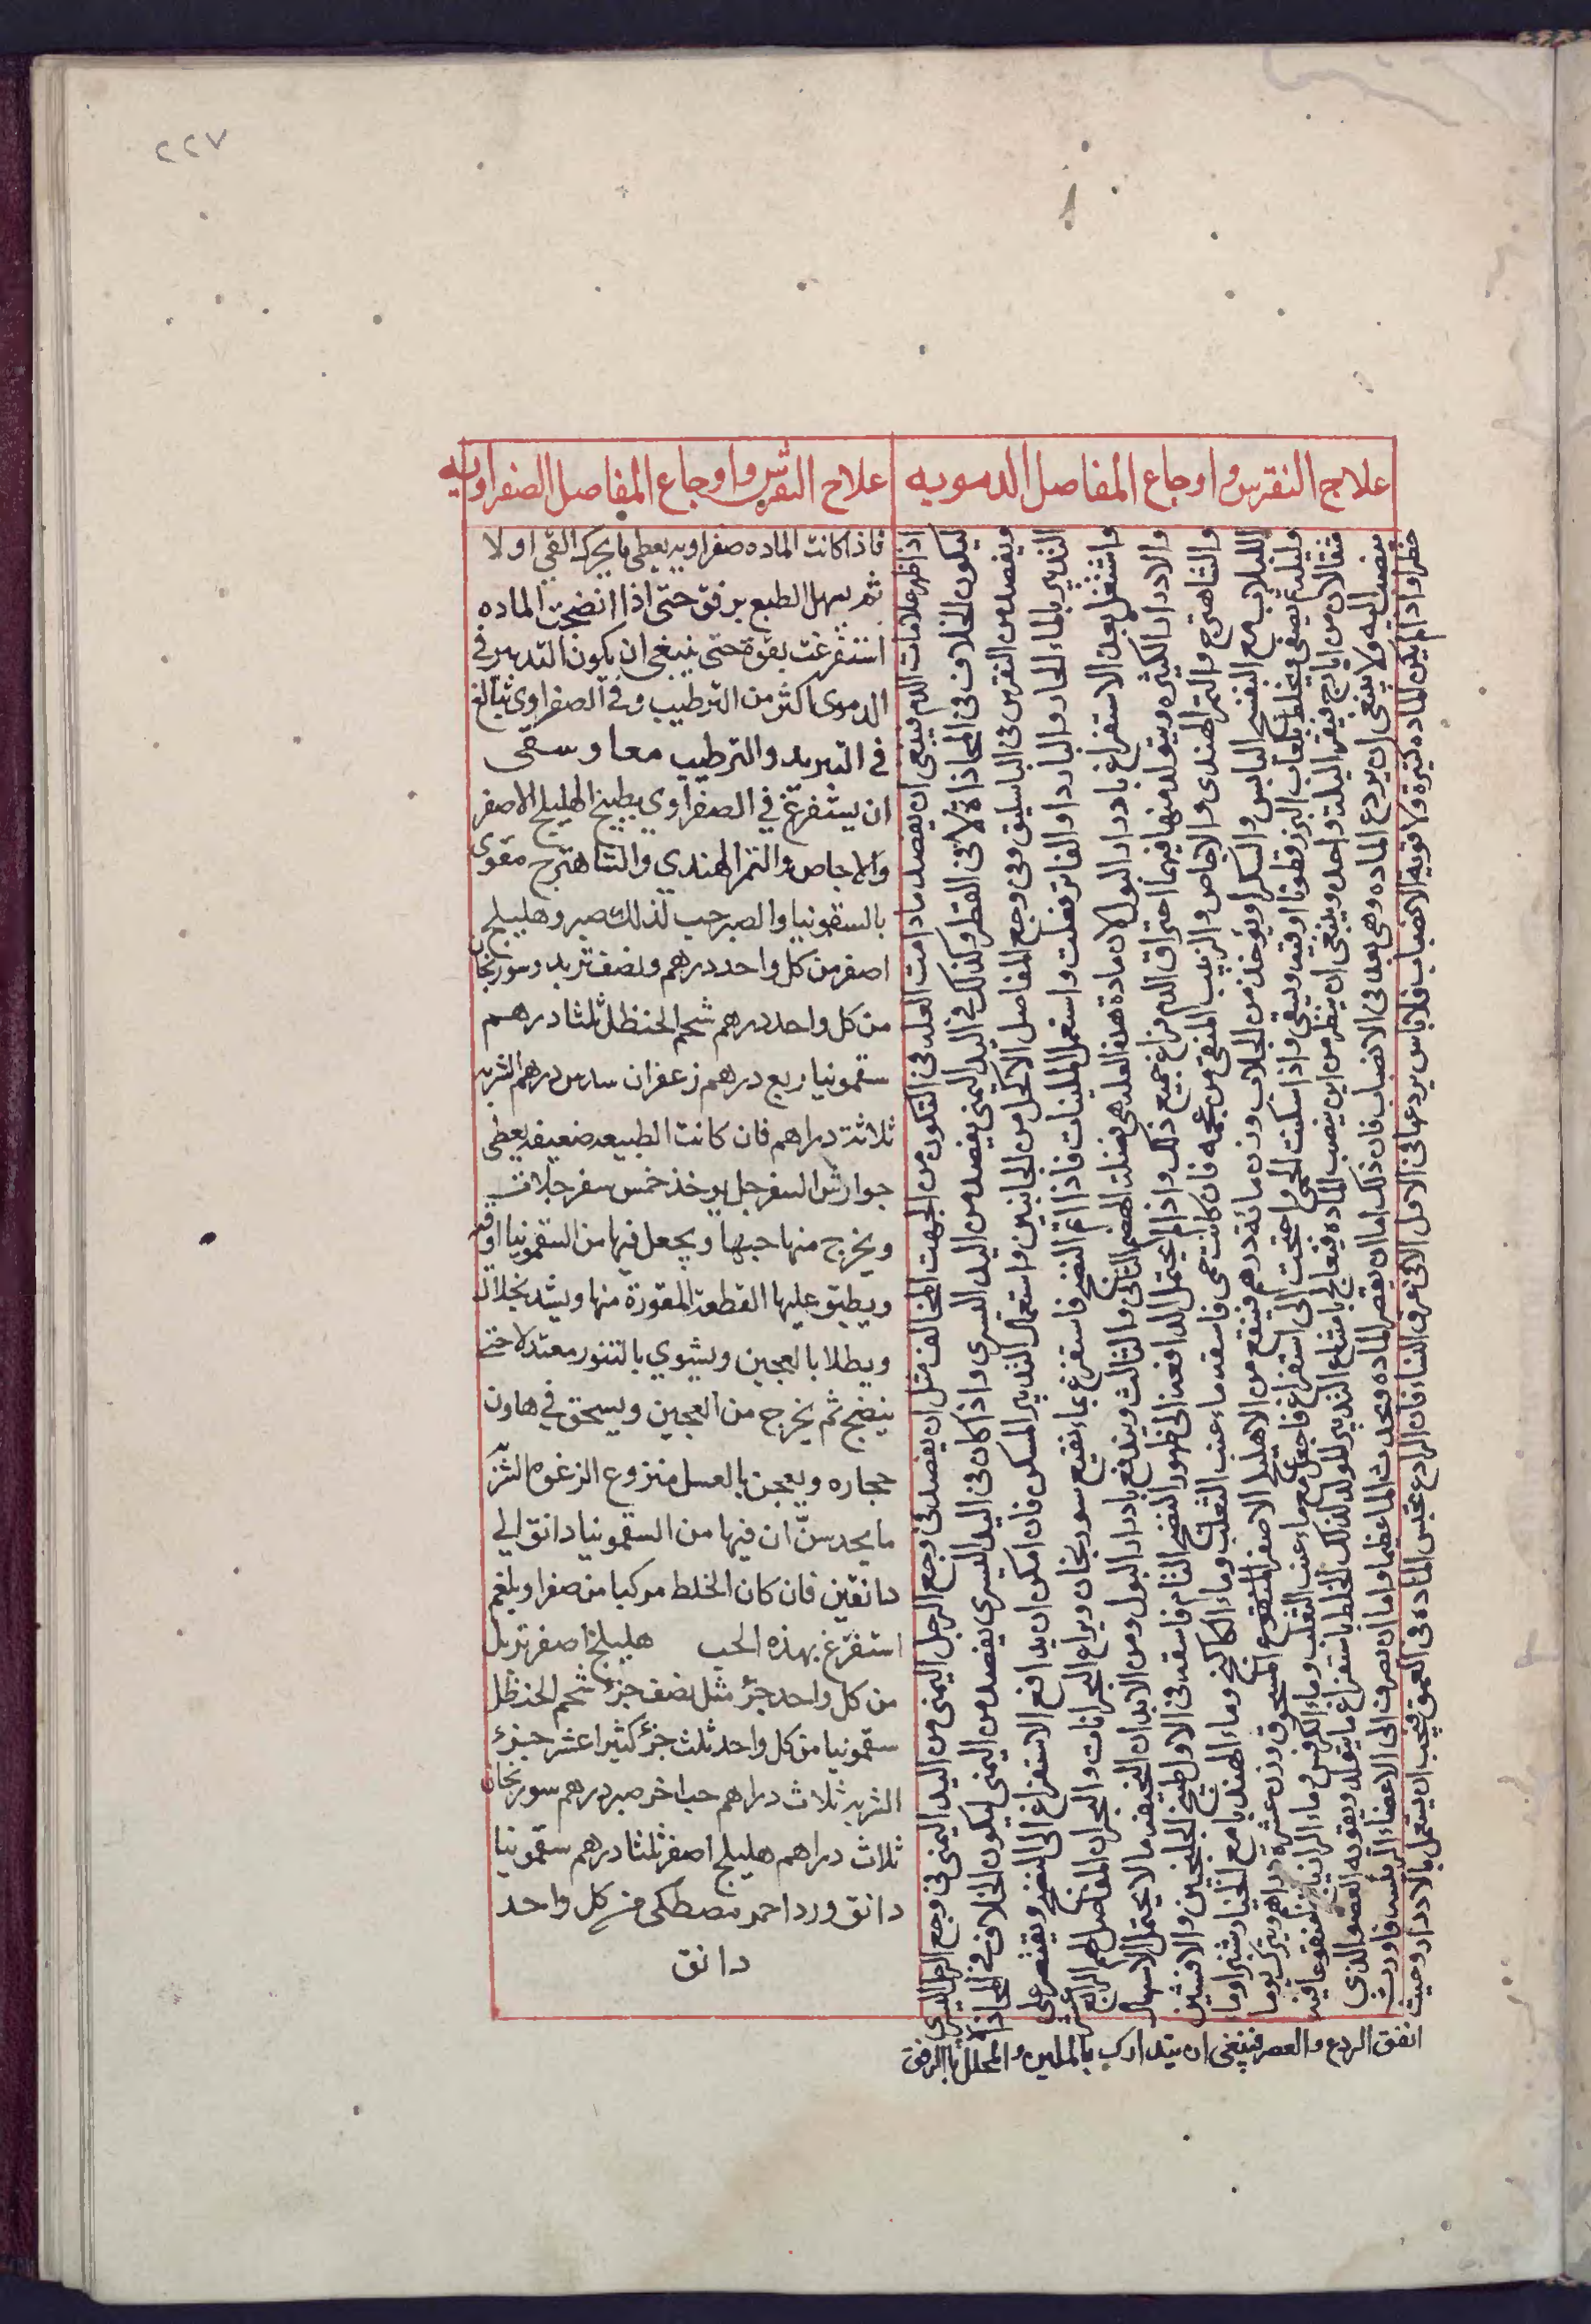 ٢٢٧
علاج النقرس واوجاع المفاصل الدمويه
علاج النقرس واوجاع المفاصل الصفراويه
اذا ظهر علامات الدم فينبغى ان يفصد مادامت العله فى التكون من الجهت المخالف مثل ان يفصد فى وجع الرجل اليمنى من اليد اليمنى فى وجع الرجل اليسرى
ليكون الخلاف فى المحاذاة لا فى القطر وكذلك فى اليد اليمنى يفصد من اليد اليسرى واذا كان فى اليد اليسرى يفصد من اليمنى ليكون الخلاف فى المحاذاة
ويفصد من النقرس فى الباسليق وفى وجع المفاصل الاكحل من الجانبين واستعمال التدبير المسكن فان امكن ان يدافع الاستفراغ الى النضج ويقتصر على
التدبير بالماء الحار والبارد او الفاتر فعلت واستعمل الملينات فاذا تم النضج فاستفرغ بماء نقيع سورنجان ويراع البحرانات والبحران المفاصل لهم الرابع عشر
واشتغل بعد الاستفراغ بادرار البول لان مادة هذه العله هى فضلة الهضم الثانى والثالث ويندفع بادرار البول ومن الابدان النحيفه ما لا يحتمل الاسهال
والادرار الكثيره ويتولد منها فيها احتراق الدم فراع جميع ذلك واذا لم يحتمل المدافعه الى ظهور النضج التام فاسقه فى الاول طبيخ الجلنجبين والافسنتين
والشاهترج والتمر الهندى والاجاص والزبيب المنقى من عجمه فان كانت حمى فاسقه ماء عنب الثعلب وماء الكاكنج وماء الهندبا مع الخيار شنبر او ماء
اللبلاب مع البنفسج اليابس والسكر او يؤخذ من الجلاب وزن مائة درهم فينقع من الاهليلج الاصفر المنقوع المسحوق وزن عشرة دراهم ويترك يوما
وليلة ثم يصفى ويخلط بلعاب البزرقطونا اوقيه ويسقى واذا سكنت الحمى واحتجت الى استفراغ فاجعل مع ماء عنب الثعلب وماء الكرفس وماء الرازيانج منقوعا فيه
مثقالان من ايارج فيقرا ليلة واحده وينبغى ان ينظر من اين ينصب الماده فيعالج بامتناع التدبير المولد لذلك الخلط باستفراغ ما يتولد ويقويه العضو الذى
ينصب اليه ولا ينبغى ان يردع الماده وهى بعد فى الانصباب فان ذلك اما ان يقصر الماده ويحدث الما عظيما واما ان يصرف الى الاعضاء الرئيسه فاورث
خطرا واذا لم يكن الماده كثيرة ولا قوية الانصباب فلا باس بردعها فى الاول الا فى عرق النساء فان الرادع يحبس الماده فى العمق فيجب ان يستعمل بالادرار وحيث
اتفق الردع والعصر فينبغى ان يتدارك بالملين والمحلل بالرفق
فاذا كانت الماده صفراويه يعطى ما يحرك القى اولا
ثم يسهل الطبع برفق حتى اذا انضجت الماده
استفرغت بقوة حتى ينبغى ان يكون التدبير فى
الدموى اكثر من الترطيب وفى الصفراوى يبالغ
فى التبريد والترطيب معا وسقى
ان يستفرغ في الصفراوي بطبيخ الهليلج الاصفر
والاجاص والتمر الهندي والشاهترج مقوى
بالسقمونيا والصبر حب لذلك صبر وهليلج
اصفر من كل واحد درهم ونصف تربد وسورنجان
من كل واحد درهم شحم الحنظل ثلثا درهم
سقمونيا ربع درهم زعفران سدس درهم الشربه
ثلاثة دراهم فان كانت الطبيعه ضعيفه يعطى
جوارش السفرجل يوخذ خمس سفرجلات
ويخرج منها حبها ويجعل فيها من السقمونيا اوقيه
ويطبق عليها القطعة المقورة منها ويشد بخلال
ويطلا بالعجين ويشوي بالتنور معتدلا حتى
ينضج ثم يخرج من العجين ويسحق في هاون
حجاره ويعجن بالعسل منزوع الرغوه الشربه
ما يحدس ان فيها من السقمونيا دانق الى
دانقين فان كان الخلط مركبا من صفرا وبلغم
استفرغ بهذه الحب هليلج اصفر تربد
من كل واحد جزؤ مثل نصف جزؤ شحم الحنظل
سقمونيا من كل واحد ثلث جزؤ كثيرا عشر جزؤ
الشربه ثلاث دراهم حب اخر صبر درهم سورنجان
ثلاث دراهم هليلج اصفر ثلثا درهم سقمونيا
دانق ورد احمر مصطكى من كل واحد
دانق